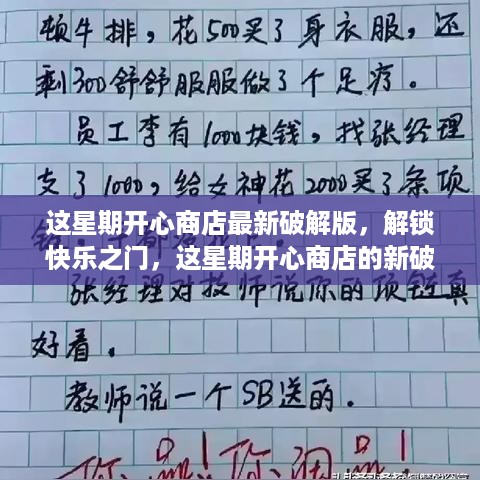 顿牛排，花500买了身衣服，还
剩300舒舒服服做了个足疗。
员工李有1000块钱，找张经理
支了1000，给女神花2000买了条项
这星期开心商店最新破解版，解锁
快乐之门，这星期开心商店的新破
张经理对教师说你的项链真
好看。
教师说一个SB送的。
你品！你细品！